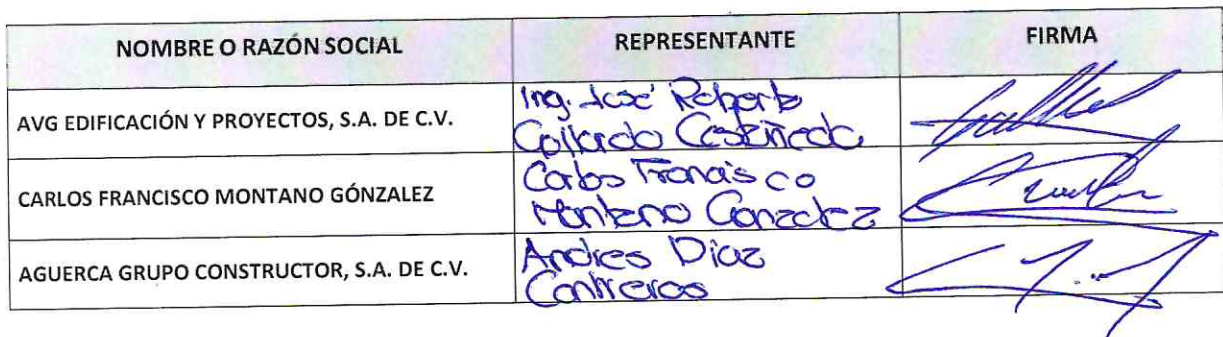 NOMBRE O RAZÓN SOCIAL REPRESENTANTE FIRMA
AVG EDIFICACIÓN Y PROYECTOS, S.A. DE C.V. Ing. José Roberto
Gallardo Castañeda
CARLOS FRANCISCO MONTANO GÓNZALEZ Carlos Francisco
Montano Gonzalez
AGUERCA GRUPO CONSTRUCTOR, S.A. DE C.V. Andres Diaz
Contreras